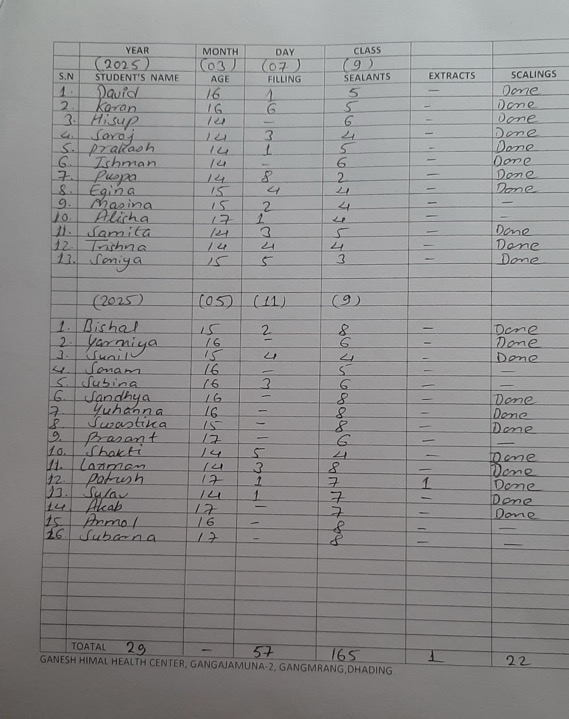 YEAR MONTH DAY CLASS
(2025) (03) (07) (9)
S.N STUDENT'S NAME AGE FILLING SEALANTS EXTRACTS SCALINGS
1. David 16 1 5 — Done
2. Karan 16 6 5 — Done
3. Hisup 14 — 6 — Done
4. Saroj 14 3 4 — Done
5. Prakash 14 1 5 — Done
6. Ishman 14 — 6 — Done
7. Puspa 14 8 2 — Done
8. Egina 15 4 4 — Done
9. Masina 15 2 4 — —
10. Alisha 17 1 4 — —
11. Samita 14 3 5 — Done
12. Trishna 14 4 4 — Done
13. Soniya 15 5 3 — Done
(2025) (05) (11) (9)
1. Bishal 15 2 8 — Done
2. Yarmiya 16 — 6 — Done
3. Sunil 15 4 4 — Done
4. Sonam 16 — 5 — —
5. Subina 16 3 6 — —
6. Sandhya 16 — 8 — Done
7 Yuhanna 16 — 8 — Done
8 Swastika 15 — 8 — Done
9. Prasant 17 — 6 — —
10. Shakti 14 5 4 — Done
11. Laxman 14 3 8 — Done
12. 17 1 7 1 Done
13. Sulav 14 1 7 — Done
14 17 — 7 — Done
15 Anmol 16 — 8 — —
16 Subarna 17 — 8 — —
TOATAL 29 — 57 165 1 22
GANESH HIMAL HEALTH CENTER, GANGAJAMUNA-2, GANGMRANG,DHADING